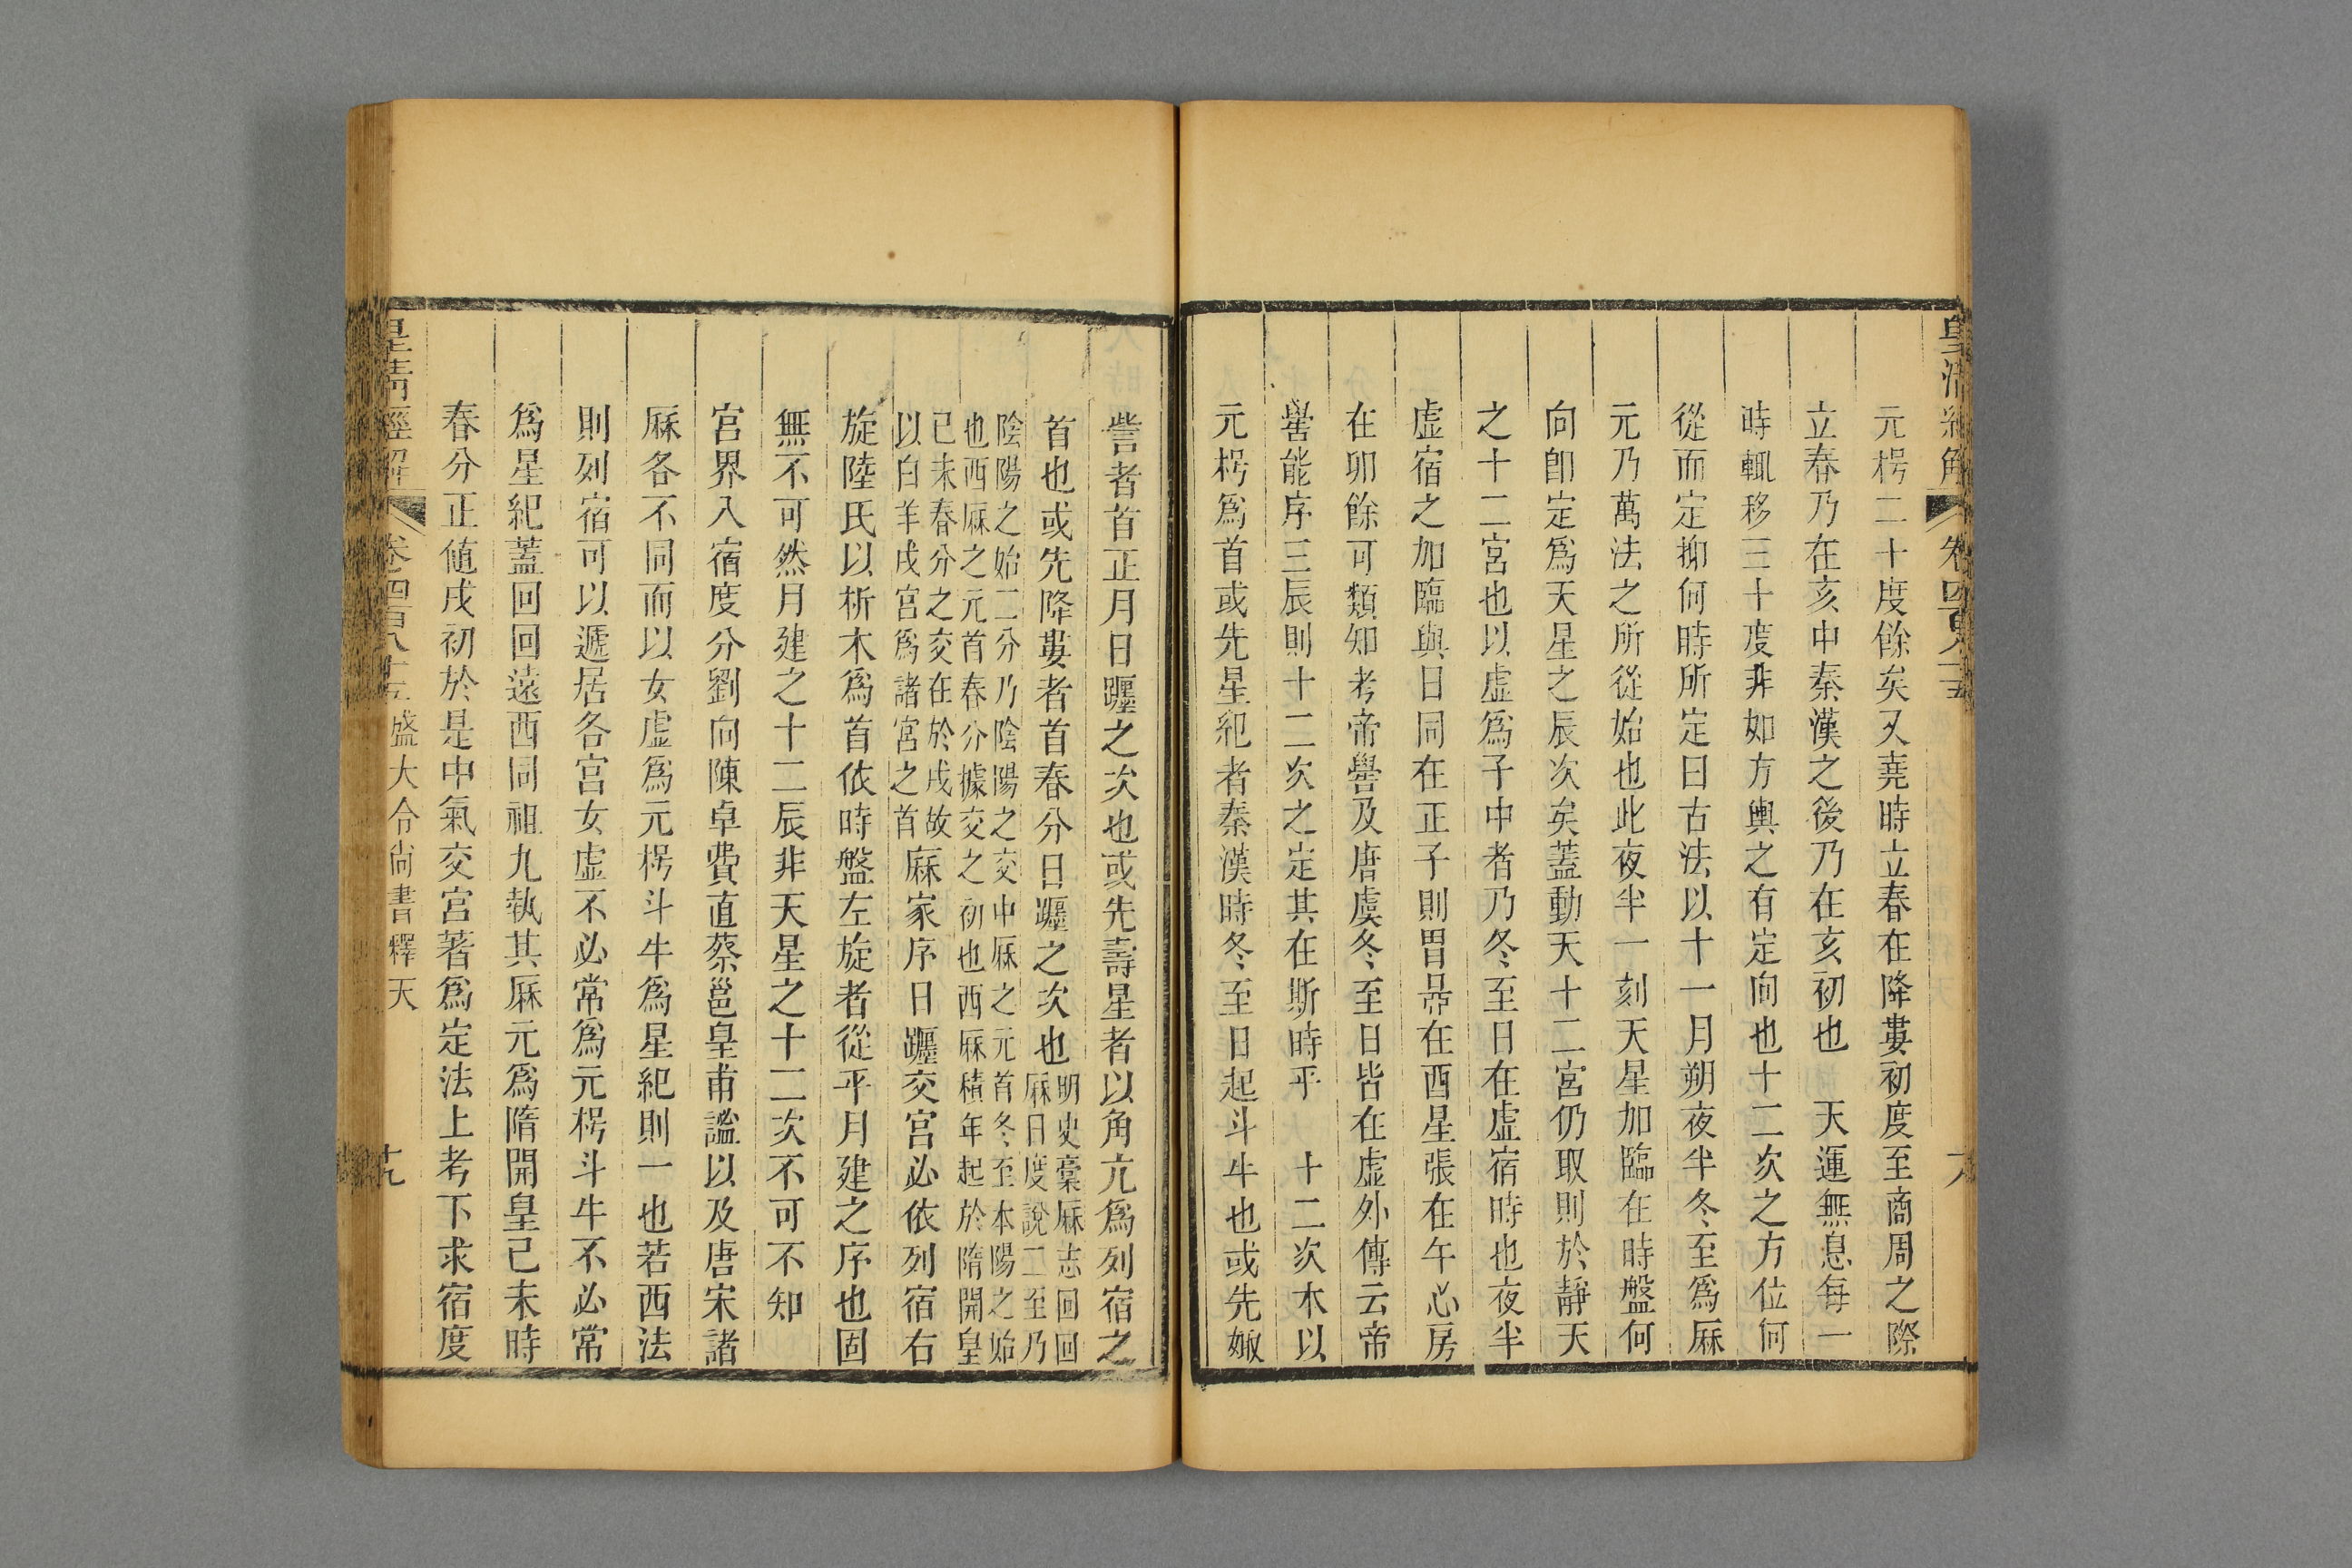 元枵二十度餘矣又堯時立春在降婁初度至商周之際
立春乃在亥中秦漢之後乃在亥初也　天運無息每一
時輒移三十度非如方輿之有定向也十二次之方位何
從而定抑何時所定曰古法以十一月朔夜半冬至爲厤
元乃萬法之所從始也此夜半一刻天星加臨在時盤何
向卽定爲天星之辰次矣蓋動天十二宮仍取則於靜天
之十二宮也以虛爲子中者乃冬至日在虛宿時也夜半
虛宿之加臨與日同在正子則胃昴在酉星張在午心房
在卯餘可類知考帝嚳及唐虞冬至日皆在虛外傳云帝
嚳能序三辰則十二次之定其在斯時乎　十二次木以
元枵爲首或先星紀者秦漢時冬至日起斗牛也或先娵
訾者首正月日躔之次也或先壽星者以角亢爲列宿之
首也或先降婁者首春分日躔之次也明史稾厤志回回
厤日度說二至乃
陰陽之始二分乃陰陽之交中厤之元首冬至本陽之始
也西厤之元首春分據交之初也西厤積年起於隋開皇
己未春分之交在於戌故
以白羊戌宮爲諸宮之首厤家序日躔交宮必依列宿右
旋陸氏以析木爲首依時盤左旋者從平月建之序也固
無不可然月建之十二辰非天星之十二次不可不知
宮界入宿度分劉向陳卓費直蔡邕皇甫謐以及唐宋諸
厤各不同而以女虛爲元枵斗牛爲星紀則一也若西法
則列宿可以遞居各宮女虛不必常爲元枵斗牛不必常
爲星紀蓋回回遠西同祖九執其厤元爲隋開皇己未時
春分正値戌初於是中氣交宮著爲定法上考下求宿度
皇清經解
卷四百八十五
盛大令尚書釋天
十九